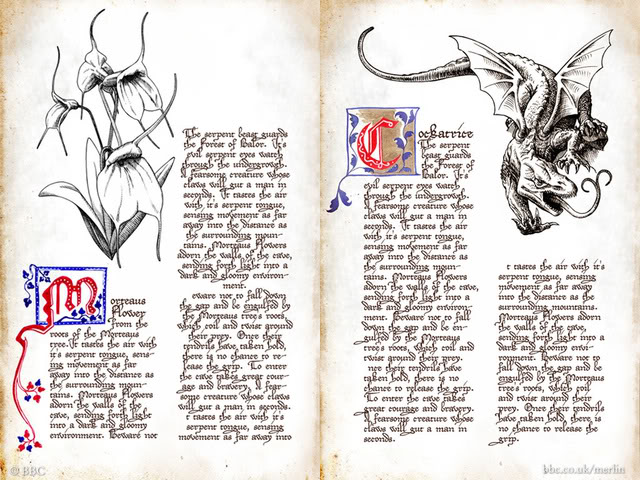 Morteaus
Flower
from the
Roots of the Morteaus
tree. It tastes the air with
it's serpent tongue, sens-
ing movement as far
away into the distance as
the surrounding moun-
tains. Morteaus Flowers
adorn the walls of the
cave, sending forth light
into a dark and gloomy
environment. Beware not
The serpent beast guards
the Forest of Balor. It's
evil serpent eyes watch
through the undergrowth.
A fearsome creature whose
claws will gut a man in
seconds. It tastes the air
with it's serpent tongue,
sensing movement as far
away into the distance as
the surrounding moun-
tains. Morteaus Flowers
adorn the walls of the cave,
sending forth light into a
dark and gloomy environ-
ment.
eware not to fall down
the gap and be engulfed by
the Morteaus tree's roots,
which coil and twist around
their prey. Once their
tendrils have taken hold,
there is no chance to re-
lease the grip. To enter
the cave takes great cour-
age and bravery. A fear-
some creature whose claws
will gut a man in seconds.
t tastes the air with it's
serpent tongue, sensing
movement as far away into
Cockatrice
The serpent
beast guards
the Forest of
Balor. It's
evil serpent eyes watch
through the undergrowth.
A fearsome creature whose
claws will gut a man in
seconds. It tastes the air
with it's serpent tongue,
sensing movement as far
away into the distance as
the surrounding moun-
tains. Morteaus Flowers
adorn the walls of the cave,
sending forth light into a
dark and gloomy environ-
ment. Beware not to fall
down the gap and be en-
gulfed by the Morteaus
tree's roots, which coil and
twist around their prey.
nce their tendrils have
taken hold, there is no
chance to release the grip.
To enter the cave takes
great courage and bravery.
A fearsome creature whose
claws will gut a man in
seconds.
t tastes the air with it's
serpent tongue, sensing
movement as far away
into the distance as the
surrounding mountains.
Morteaus Flowers adorn
the walls of the cave,
sending forth light into a
dark and gloomy envi-
ronment. Beware not to
fall down the gap and be
engulfed by the Morteaus
tree's roots, which coil
and twist around their
prey. Once their tendrils
have taken hold, there is
no chance to release the
grip.
© BBC
bbc.co.uk/merlin